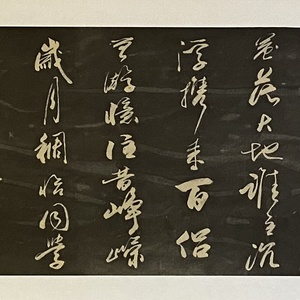 茫大地谁主沉
浮携来百侣
曾游忆往昔峥嵘
岁月稠恰同学